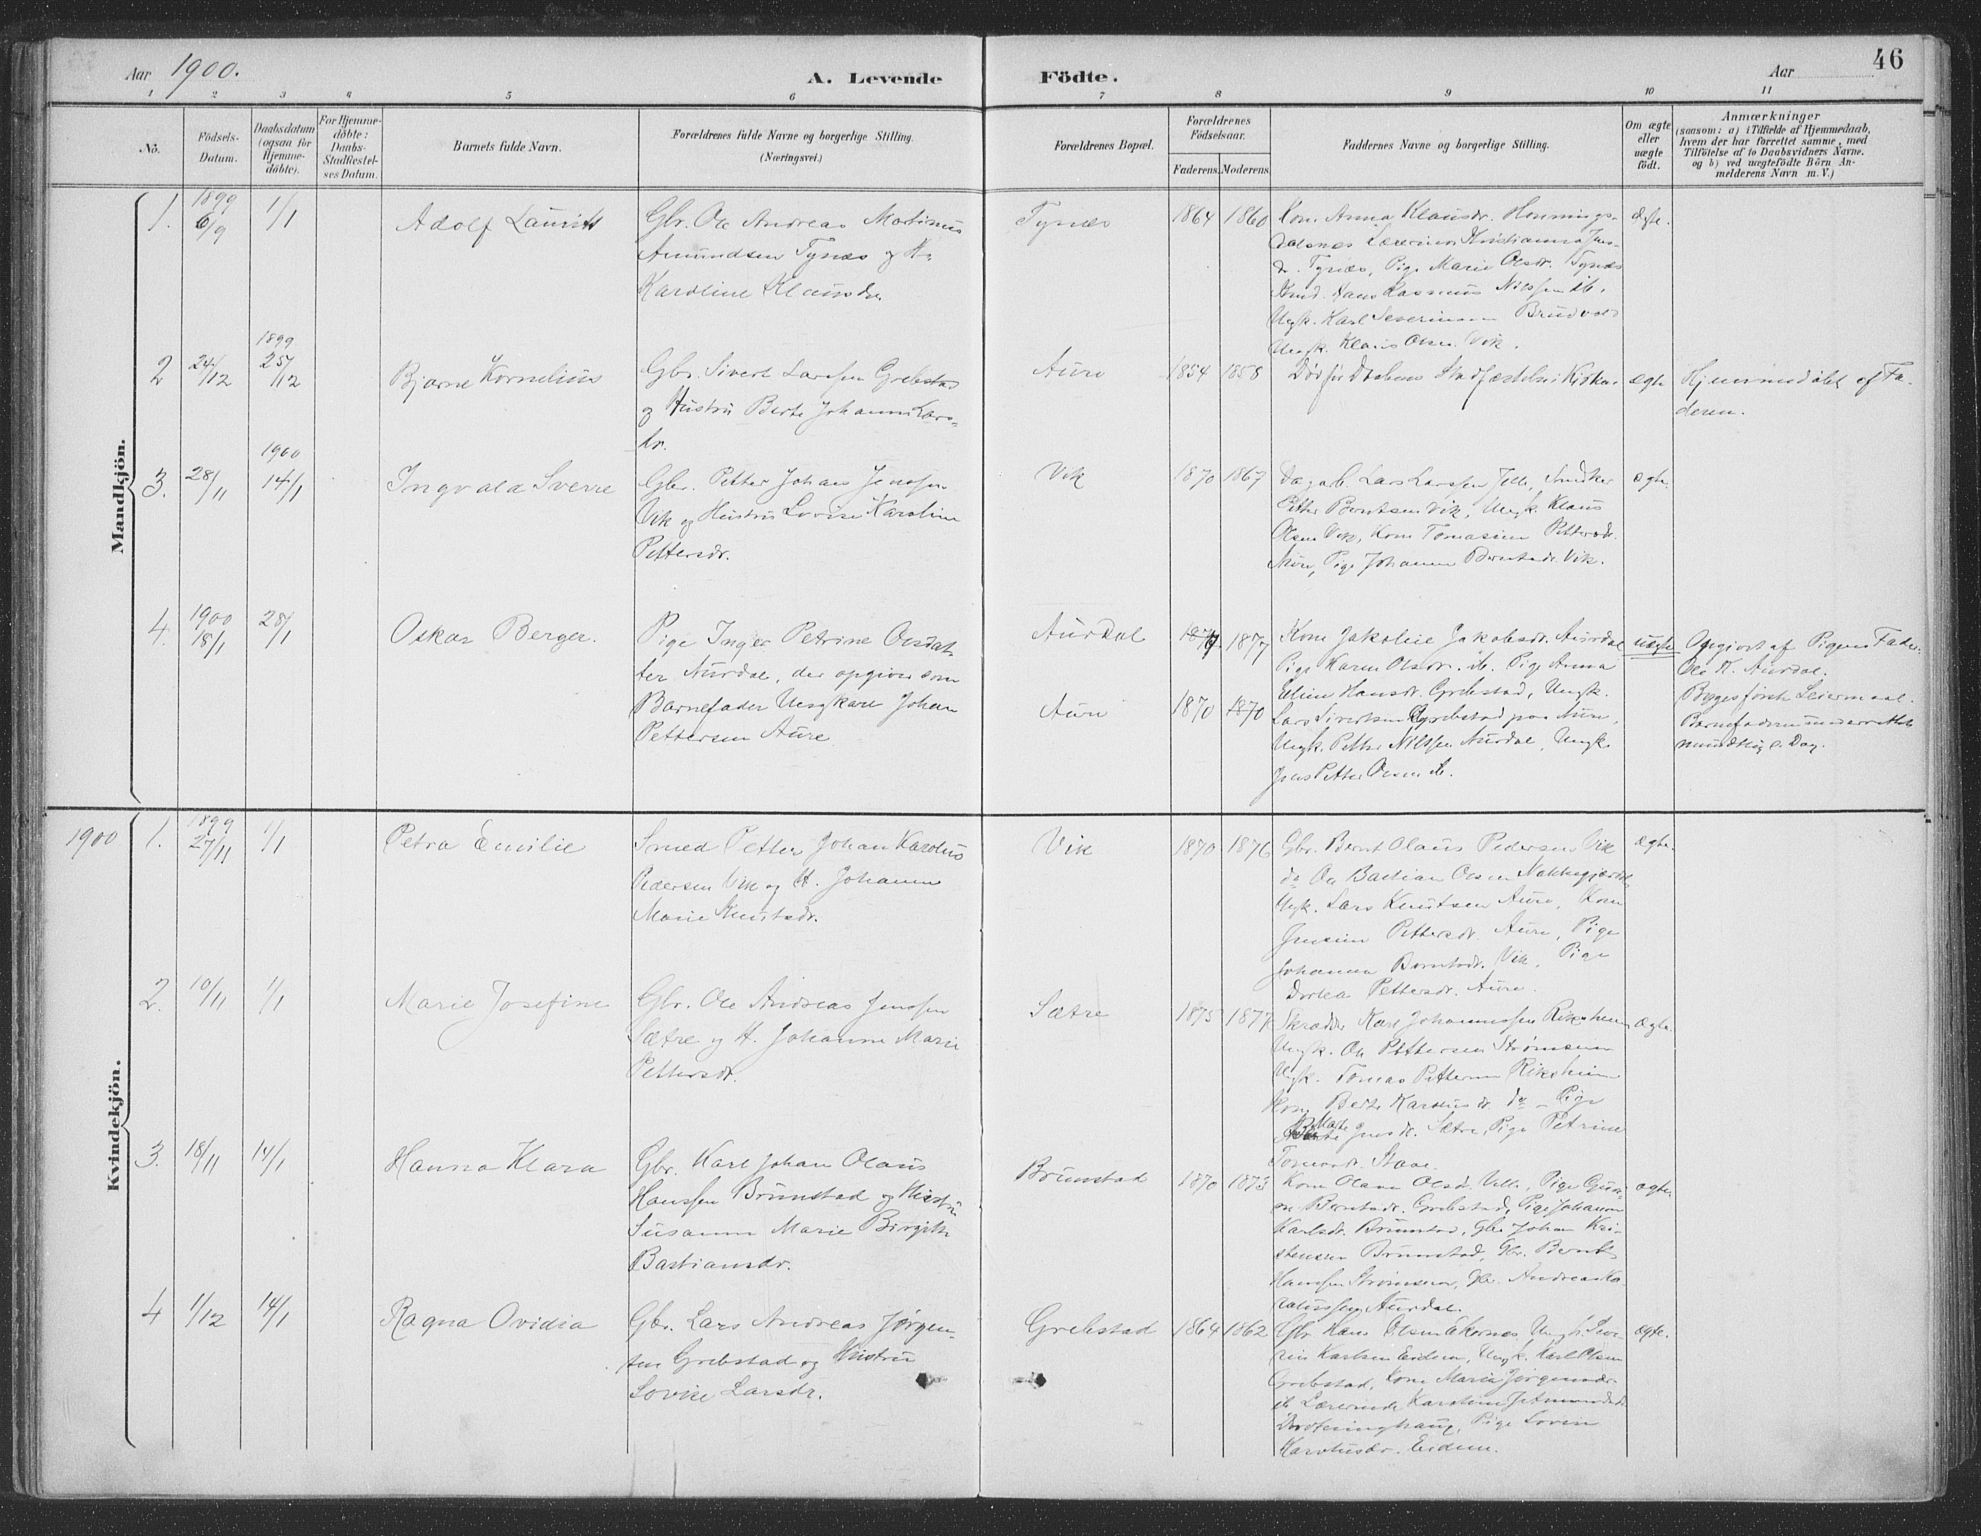 Aar 1900.
A. Levende Födte.
Aar
46
1 2 3 4 5 6 7 8 9 10 11
No.
Födsels-
Datum.
Daabsdatum
(ogsaa for
Hjemme-
döbte).
For Hjemme-
döbte:
Daabs-
Stadfæstel-
ses Datum.
Barnets fulde Navn.
Forældrenes fulde Navne og borgerlige Stilling.
(Næringsvei.)
Forældrenes Bopæl.
Forældrenes
Födselsaar.
Faderens. Moderens.
Faddernes Navne og borgerlige Stilling.
Om ægte
eller
uægte
födt.
Anmærkninger
(saasom: a) i Tilfælde af Hjemmedaab,
hvem der har forrettet samme, med
Tilföielse af to Daabsvidners Navne.
og b) ved uægtefödte Börn An-
melderens Navn m. V.)
Mandkjön.
1. 1899 6/9 1/1 Adolf Lauritz
Gbr. Ole Andreas Martinus
Amundsen Tynæs og H.
Karoline Klausdr.
Tynæs 1864 1860
Kone Anna Klausdr. Hennings-
dalsnes Lærerinde Kristianna Jens-
dr. Tynæs, Pige Marie Olsdr. Tynæs
Hans Rasmus Nilssen ib.
Ungk. Karl Severinsen Brudvold
Ungk. Klaus Olsen Vik.
ægte.
2 24/12 1899 25/12 Bjarne Kornelius
Gbr. Sivert Larssen Grebstad
og Hustru Berte Johanne Lars-
dr.
Aure 1854 1858
Död för Daabens Stadfæstelse i Kirken.
ægte
Hjemmedöbt af Fa-
deren.
3. 28/11 1900 14/1 Ingvald Sverre
Gbr. Petter Johan Jenssen
Vik og Hustru Lovise Karoline
Pettersdr.
Vik 1870 1867
Lars Larssen Snedker
Petter Berntsen Vik, Ungk. Klaus
Olsen Vik, Kone Tomasine Pettersdr.
Aure, Pige Johanne Berntsdr. Vik.
ægte.
4. 1900 8/1 28/1 Oskar Berger.
Pige Inger Petrine Olsdat-
ter Aurdal, der opgiver som
Barnefader Ungkarl Johan
Pettersen Aure
Aurdal 1877
Aure 1870 1870
Kone Jakobie Jakobsdr. Aurdal
Pige Karen Olsdr. ib. Pige Anna
Eline Hansdr. Grebstad, Ungk.
Lars Sivertsen Grebstad paa Aure,
Ungk. Petter Nilssen Aurdal, Ungk.
Jens Petter Olsen ib.
uægte
Opgivet af Pigens Fader
Ole K. Aurdal.
Begges förste Leiermaal.
Barnefaderen underrettet
mundtlig s. Dag.
Kvindekjön.
1900 1. 1899 27/11 1/1 Petra Emilie
Smed Petter Johan Karolus
Pedersen Vik og H. Johanne
Marie Knutsdr.
Vik 1870 1876
Gbr. Bernt Olaus Pedersen Vik
do Ole Bastian Olsen
Ungk. Lars Knutsen Aure, Kone
Jensine Pettersdr. Aure, Pige
Johanna Berntsdr. Vik, Pige
Dortea Pettersdr. Aure.
ægte.
2. 10/11 1/1 Marie Josefine
Gbr. Ole Andreas Jenssen
Sætre og H. Johanne Marie
Pettersdr.
Sætre 1875 1877
Skrædder Karl Johannessen Riksheim
Ungk. Ole Pettersen Strömmen
Ungk. Tomas Pettersen Riksheim
Kone Berte Karolusdr. do Pige
Marte Jensdr. Sætre, Pige Petrine
Tomasdr.
ægte.
3. 18/11 14/1 Hanna Klara
Gbr. Karl Johan Olaus
Hanssen Brunstad og Hustru
Susanne Marie Birgitte
Bastiansdr.
Brunstad 1870 1873
Kone Olava Olsdr. Pige
Berntsdr. Grebstad, Pige Johanne
Karlsdr. Brunstad, Gbr. Johan Kri-
stensen Brunstad, Gbr. Bernt
Hanssen Strömmen, Gbr. Andreas Ka-
rolussen Aurdal.
ægte.
4 1/12 14/1 Ragna Ovidia
Gbr. Lars Andreas Jörgen-
sen Grebstad og Hustru
Lovise Larsdr.
Grebstad 1864 1862
Gbr. Hans Olsen Ekornes, Ungk. Seve-
rin Karlsen Eidem, Ungk. Karl Olsen
Grebstad, Kone Marie Jörgensdr.
ib. Lærerinde Karoline
Pige Lovise
Karolusdr. Eidem.
ægte.